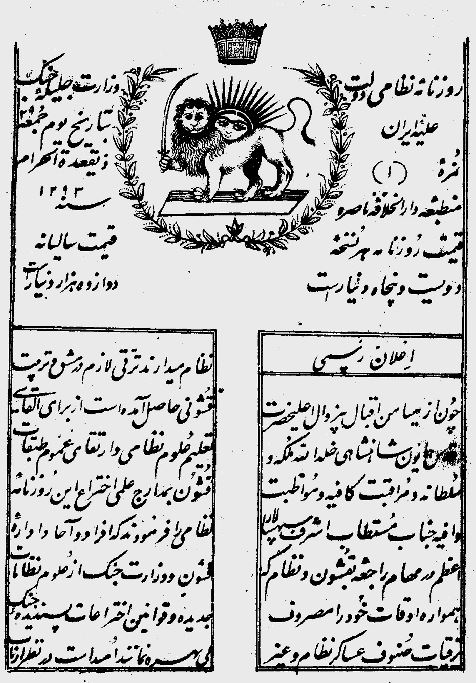 روزنامه نظامی دولت
علیّه ایران
نمرهٔ
(۱)
منطبعه دار الخلافه ناصره
قیمت روزنامه هر نسخه
دویست و پنجاه دینار است
وزارت جلیله جنگ
بتاریخ یوم جمعه
ذیقعدة الحرام
سنه ۱۲۹۳
قیمت سالیانه
دوازده هزار دینار است
اعلان رسمی
چون از میامن اقبال بیزوال اعلیحضرت
همایون شاهنشاهی خلد الله ملکه و
سلطانه و مراقبت کافیه و مواظبت
وافیه جناب مستطاب اشرف سپهسالار
اعظم در مهام راجعه بقشون و نظام که
همواره اوقات خود را مصروف
ترقیات صنوف عساکر نظام و غیر
نظام میدارند ترقی لازم در مشق و تربیت
قشونی حاصل آمده است از برای القای
تعلیم علوم نظامی و ارتقای عموم طبقات
قشون بمدارج علمی اختراع این روزنامه
نظامی را فرمودند که افراد و آحاد اداره
قشون و وزارت جنگ از علوم نظامات
جدیده و قوانین اختراعات پسندیده جنگ
بهره نمانند امید است در نظر